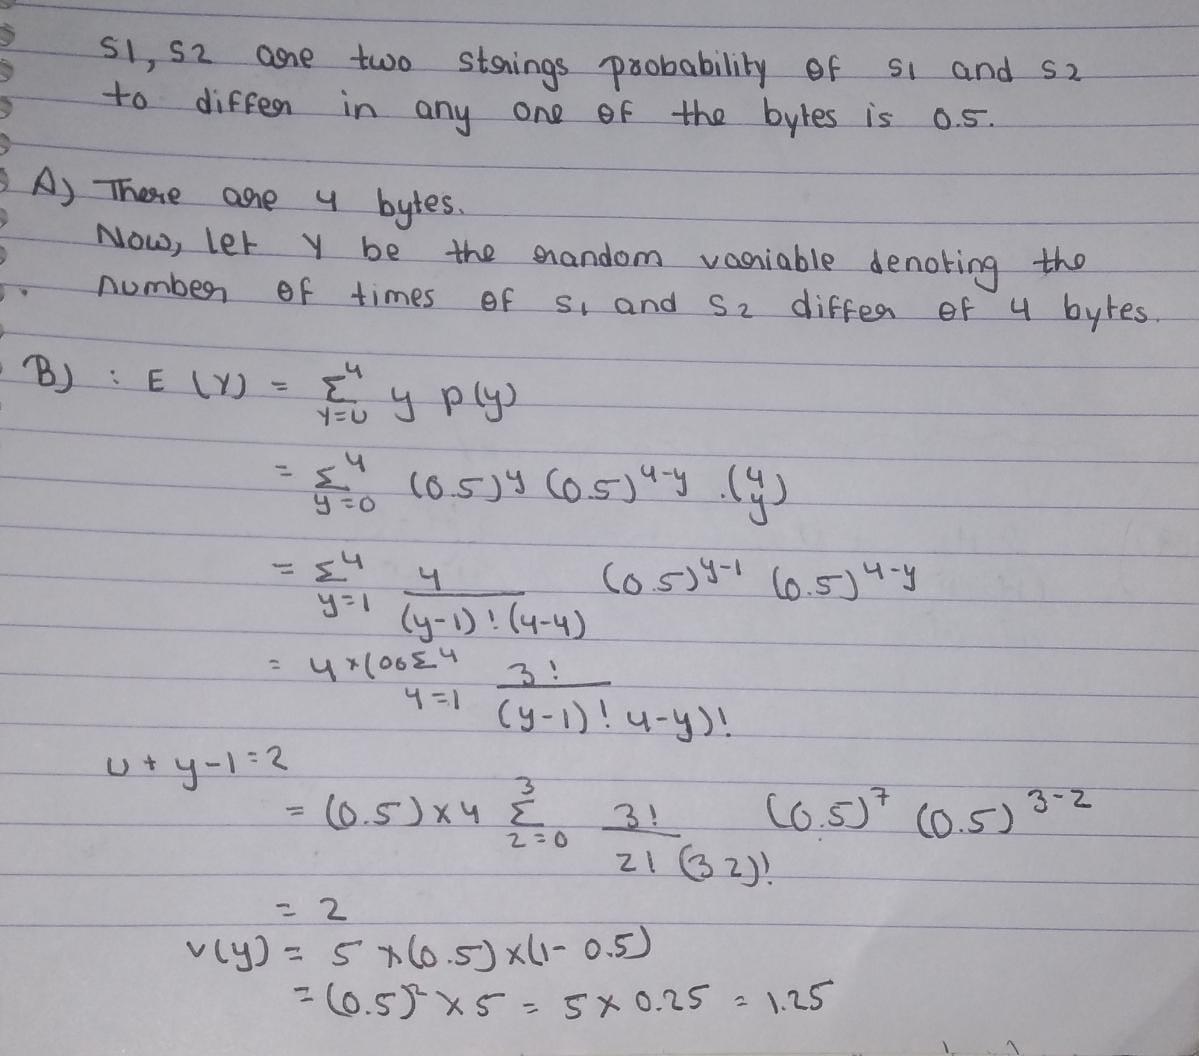 S1, S2 are two strings probability of S1 and S2
to differ in any one of the bytes is 0.5.
A) There are 4 bytes.
Now, let Y be the random variable denoting the
number of times of S1 and S2 differ of 4 bytes.
B) : E(Y) = Σ⁴ y=0 y p(y)
= Σ⁴ y=0 (0.5)^y (0.5)^4-y . (4 y)
= Σ⁴ y=1 4 / (y-1)! (4-4) (0.5)^y-1 (0.5)^4-y
= 4 x (06 Σ⁴ 4=1 3! / (y-1)! 4-y)!
u + y-1 = 2
= (0.5) x 4 Σ³ 2=0 3! / 2! (3 2)! (0.5)^7 (0.5)^3-2
= 2
v(y) = 5 x (0.5) x (1- 0.5)
= (0.5)² x 5 = 5 x 0.25 = 1.25